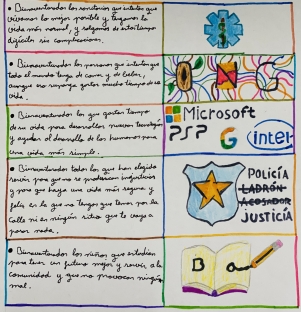 • Bienaventurados los sanitarios que intentan que
vivamos lo mejor posible y tengamos la
vida más normal, y salgamos de estos tiempos
difíciles sin complicaciones.
• Bienaventurados las personas que intentan que
todo el mundo tenga de comer y de beber,
aunque eso suponga gastar mucho tiempo de su
vida.
• Bienaventurados los que gastan tiempo
de su vida para desarrollar nuevas tecnologías
y ayudar al desarrollo de los humanos para
una vida más simple.
Microsoft
PSP G intel
• Bienaventurados todos los que han elegido
servir para que no se produzcan injusticias
y por que haya una vida más segura y
feliz en la que no tengas que temer por la
calle ni en ningún sitio que te vaya a
pasar nada.
POLICÍA
LADRÓN
ACOSADOR
JUSTICIA
• Bienaventurados los niños que estudian
para tener un futuro mejor y servir a la
comunidad y que no provocan ningún
mal.
B a